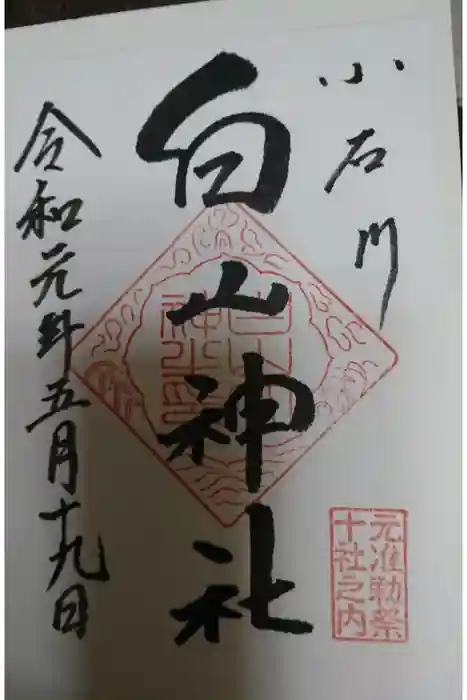 小石川
白山神社
令和元年五月十九日
元准勅祭
十社之内